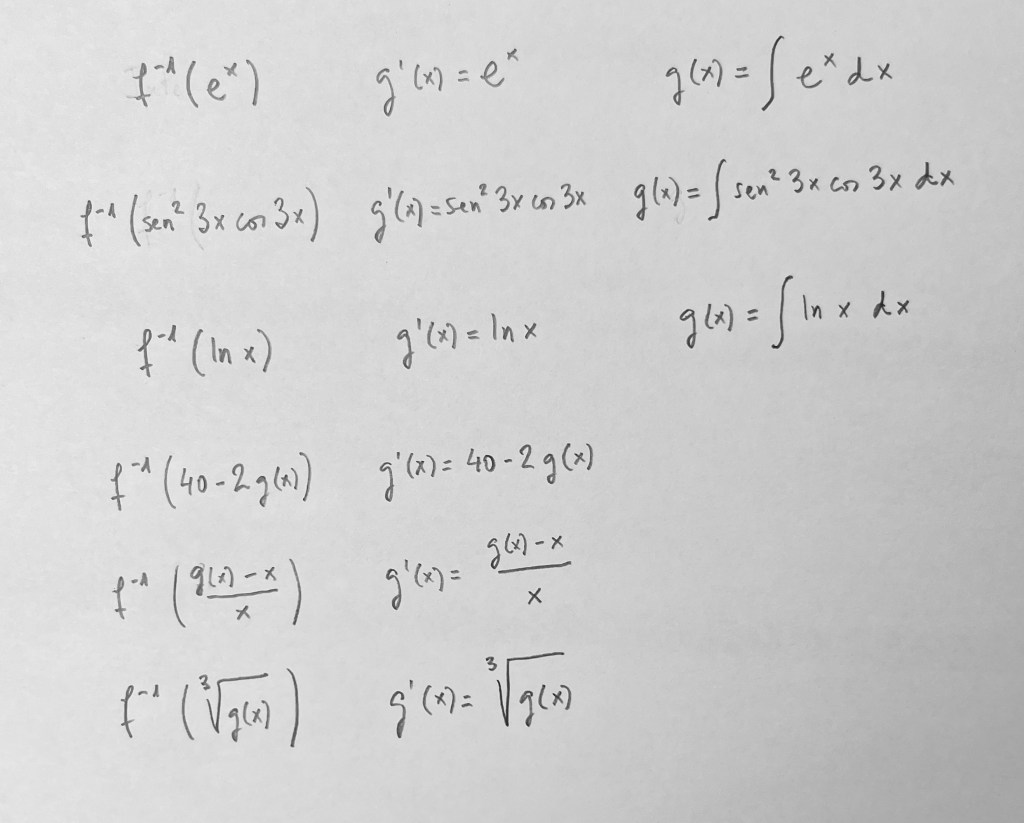 f⁻¹(eˣ) g'(x) = eˣ g(x) = ∫ eˣ dx
f⁻¹(sen² 3x cos 3x) g'(x) = sen² 3x cos 3x g(x) = ∫ sen² 3x cos 3x dx
f⁻¹(ln x) g'(x) = ln x g(x) = ∫ ln x dx
f⁻¹(40 - 2g(x)) g'(x) = 40 - 2g(x)
f⁻¹((g(x) - x)/x) g'(x) = (g(x) - x)/x
f⁻¹(∛g(x)) g'(x) = ∛g(x)